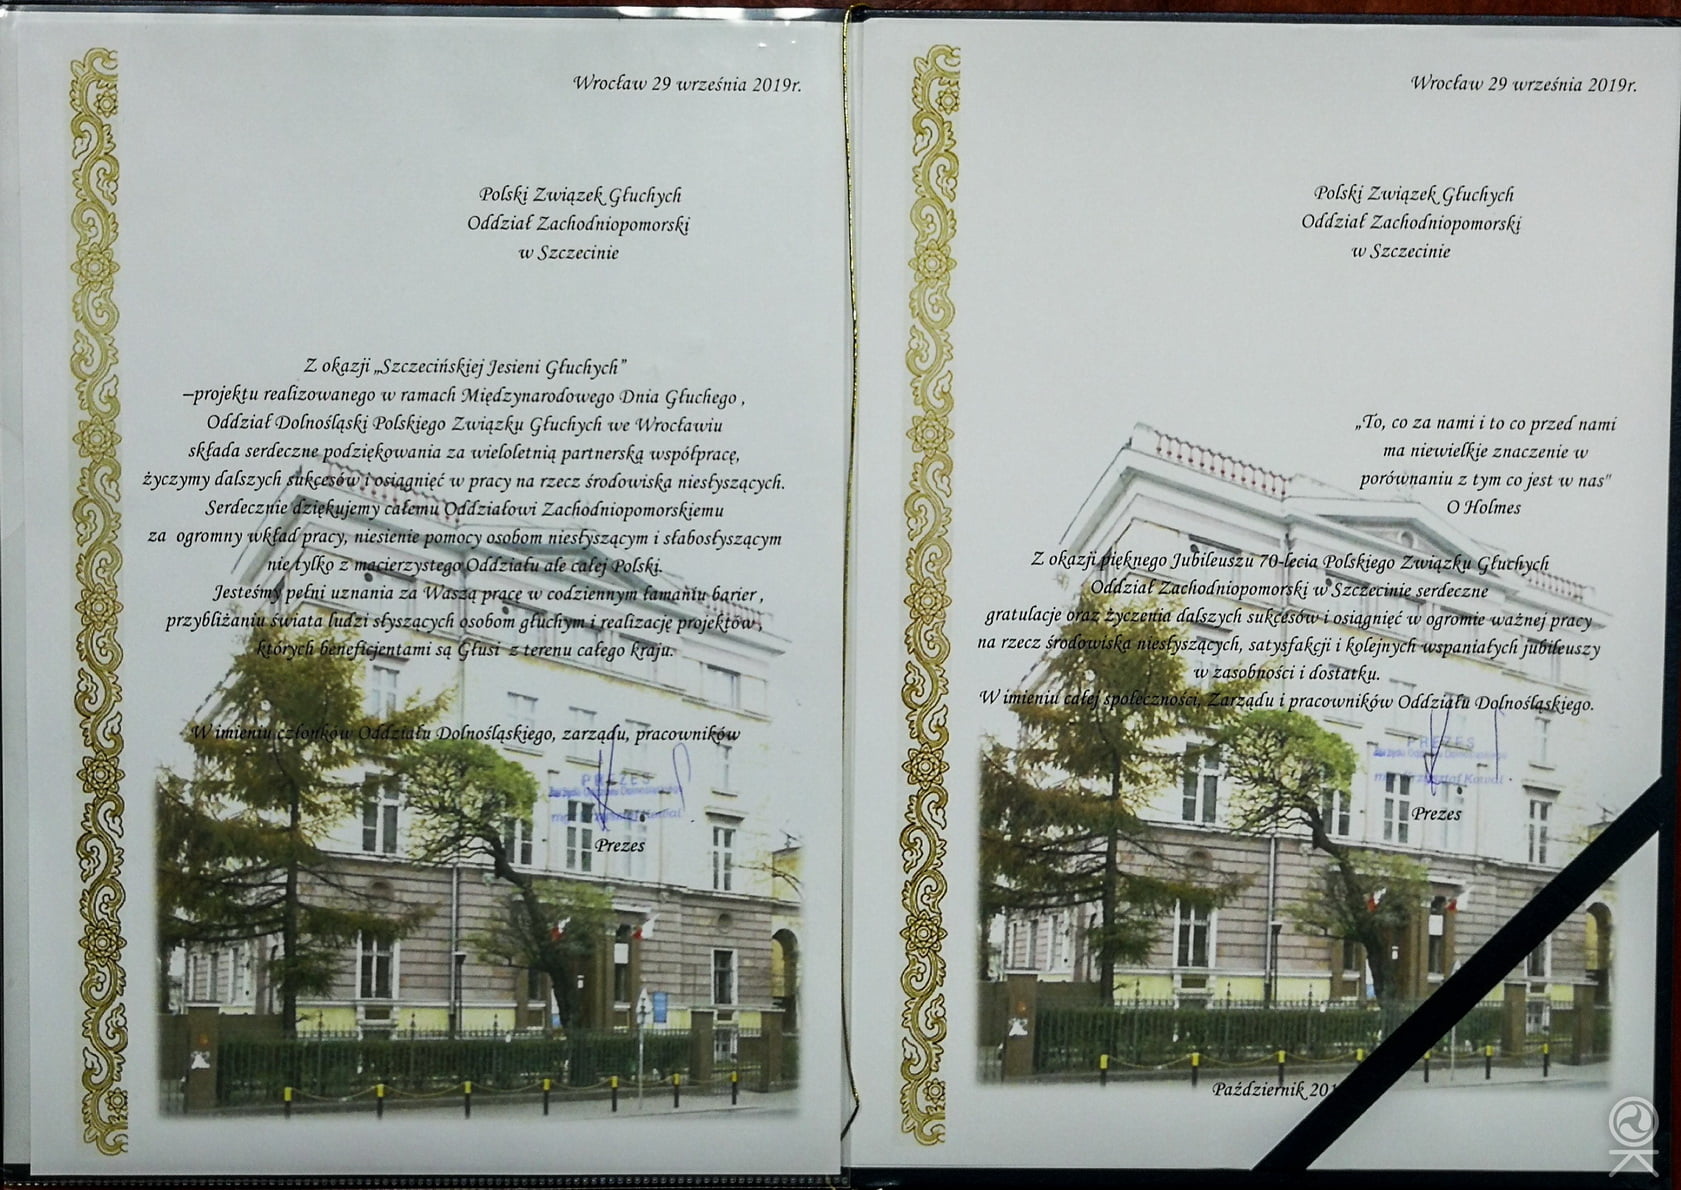 Wrocław 29 września 2019r.
Polski Związek Głuchych
Oddział Zachodniopomorski
w Szczecinie
Z okazji „Szczecińskiej Jesieni Głuchych”
–projektu realizowanego w ramach Międzynarodowego Dnia Głuchego ,
Oddział Dolnośląski Polskiego Związku Głuchych we Wrocławiu
składa serdeczne podziękowania za wieloletnią partnerską współpracę,
życzymy dalszych sukcesów i osiągnięć w pracy na rzecz środowiska niesłyszących.
Serdecznie dziękujemy całemu Oddziałowi Zachodniopomorskiemu
za ogromny wkład pracy, niesienie pomocy osobom niesłyszącym i słabosłyszącym
nie tylko z macierzystego Oddziału ale całej Polski.
Jesteśmy pełni uznania za Waszą pracę w codziennym łamaniu barier ,
przybliżaniu świata ludzi słyszących osobom głuchym i realizację projektów ,
których beneficjentami są Głusi z terenu całego kraju.
W imieniu członków Oddziału Dolnośląskiego, zarządu, pracowników
PREZES
Zarządu Oddziału Dolnośląskiego
Prezes
Wrocław 29 września 2019r.
Polski Związek Głuchych
Oddział Zachodniopomorski
w Szczecinie
„To, co za nami i to co przed nami
ma niewielkie znaczenie w
porównaniu z tym co jest w nas"
O Holmes
Z okazji pięknego Jubileuszu 70-lecia Polskiego Związku Głuchych
Oddział Zachodniopomorski w Szczecinie serdeczne
gratulacje oraz życzenia dalszych sukcesów i osiągnięć w ogromie ważnej pracy
na rzecz środowiska niesłyszących, satysfakcji i kolejnych wspaniałych jubileuszy
w zasobności i dostatku.
W imieniu całej społeczności, Zarządu i pracowników Oddziału Dolnośląskiego.
PREZES
Zarządu Oddziału Dolnośląskiego
mgr Krzysztof Kowal
Prezes
Październik 201
OK